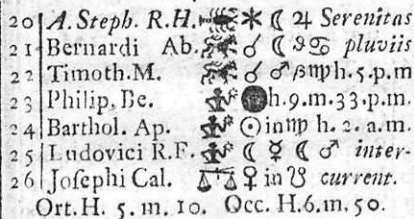 20 A. Steph. R.H. ♏ ⚹ ☾ ♃ Serenitas
21 Bernardi Ab. ♐ ☌ ☾ ☊ ♋ pluviis
22 Timoth. M. ♐ ☌ ☾ ♂ ßnph. 5. p.m
23 Philip. Be. h. 9. m. 33. p.m.
24 Barthol. Ap. ☉ in ♍ h. 2. a.m.
25 Ludovici R.F. ☾ ☿ ☾ ♂ inter-
26 Josephi Cal. ♎ ♀ in ☋ current.
Ort. H. 5. m. 10. Occ. H. 6. m. 50.